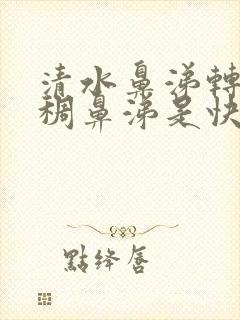 清水鼻涕轉
稠鼻涕是快
點绛唇